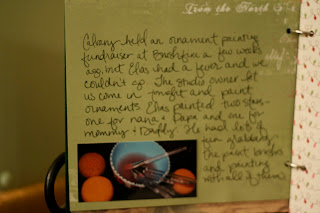 From the North
held an ornament painting
fundraiser at Brushfire a few weeks
ago, but Elas had a fever and we
couldn't go. The studio owner let
us come in tonight and paint
ornaments. Elias painted two stars -
one for nana & Papa and one for
mommy & Daddy. He had lots of
fun grabbing
the paint brushes
and painting
with all of them.